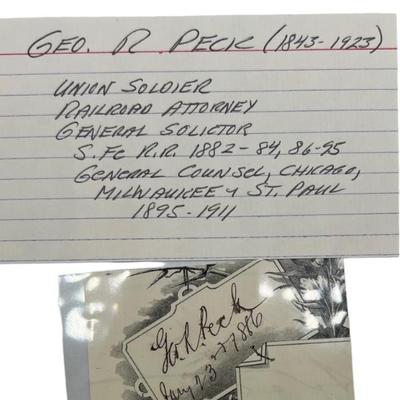 GEO. R. PECK (1843-1923)
UNION SOLDIER
RAILROAD ATTORNEY
GENERAL SOLICTOR
S. Fe R.R. 1882-84, 86-95
GENERAL COUNSEL, CHICAGO,
MILWAUKEE & ST. PAUL
1895-1911
Geo. R. Peck
Jany 23rd 1886